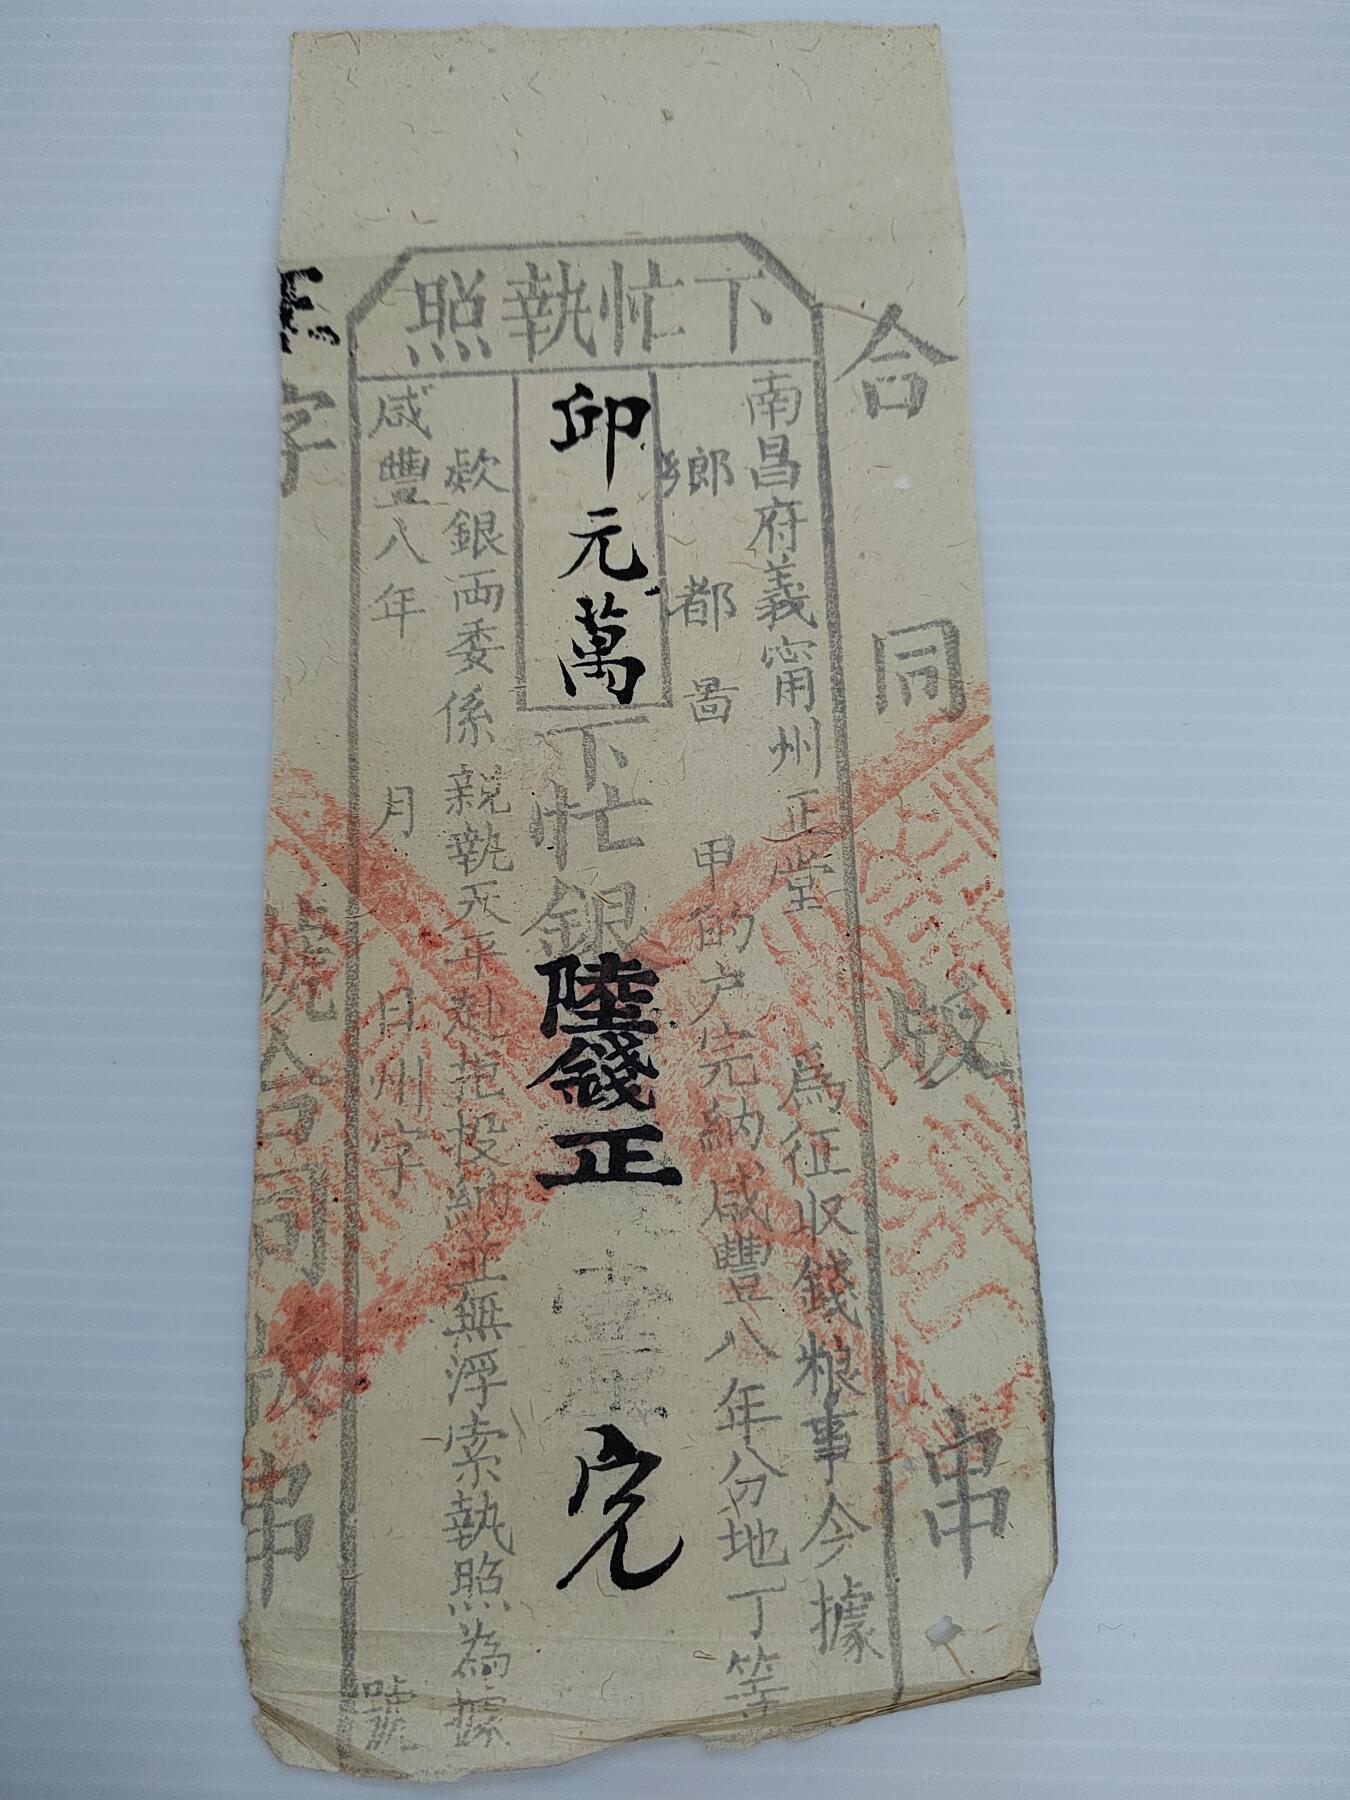 下忙執照
合同版串
南昌府義甯州正堂 爲征収錢粮事今據
鄉 都 啚 甲的户完納咸豐八年分地丁等
邱元萬
下忙銀陸錢正
完
欵銀両委係親執天平赴柜投納並無浮索執照為據
咸豐八年 月 日州字 號
字
合同版串